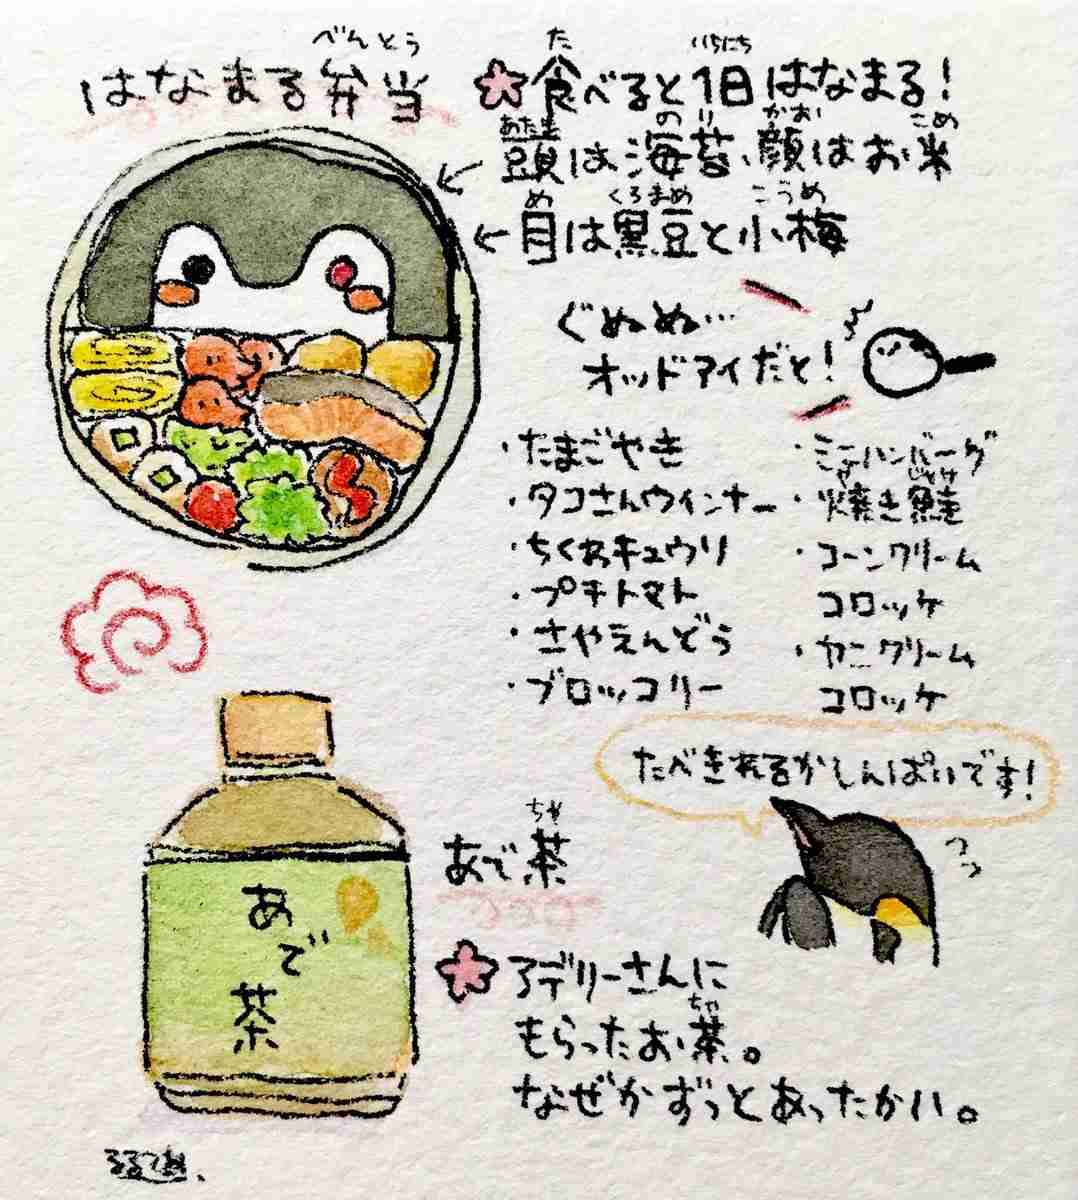 はなまる弁当
べんとう
食べると1日はなまる!
た
いちにち
頭は海苔、顔はお米
あたま
のり
かお
こめ
目は黒豆と小梅
め
くろまめ
こうめ
ぐぬぬ…
オッドアイだと!
・たまごやき
・タコさんウインナー
・ちくわキュウリ
・プチトマト
・さやえんどう
・ブロッコリー
・ミニハンバーグ
・焼き鮭
や
しゃけ
・コーンクリーム
コロッケ
・カニクリーム
コロッケ
たべきれるかしんぱいです!
あで茶
ちゃ
あで茶
アデリーさんに
もらったお茶。
ちゃ
なぜかずっとあったかい。